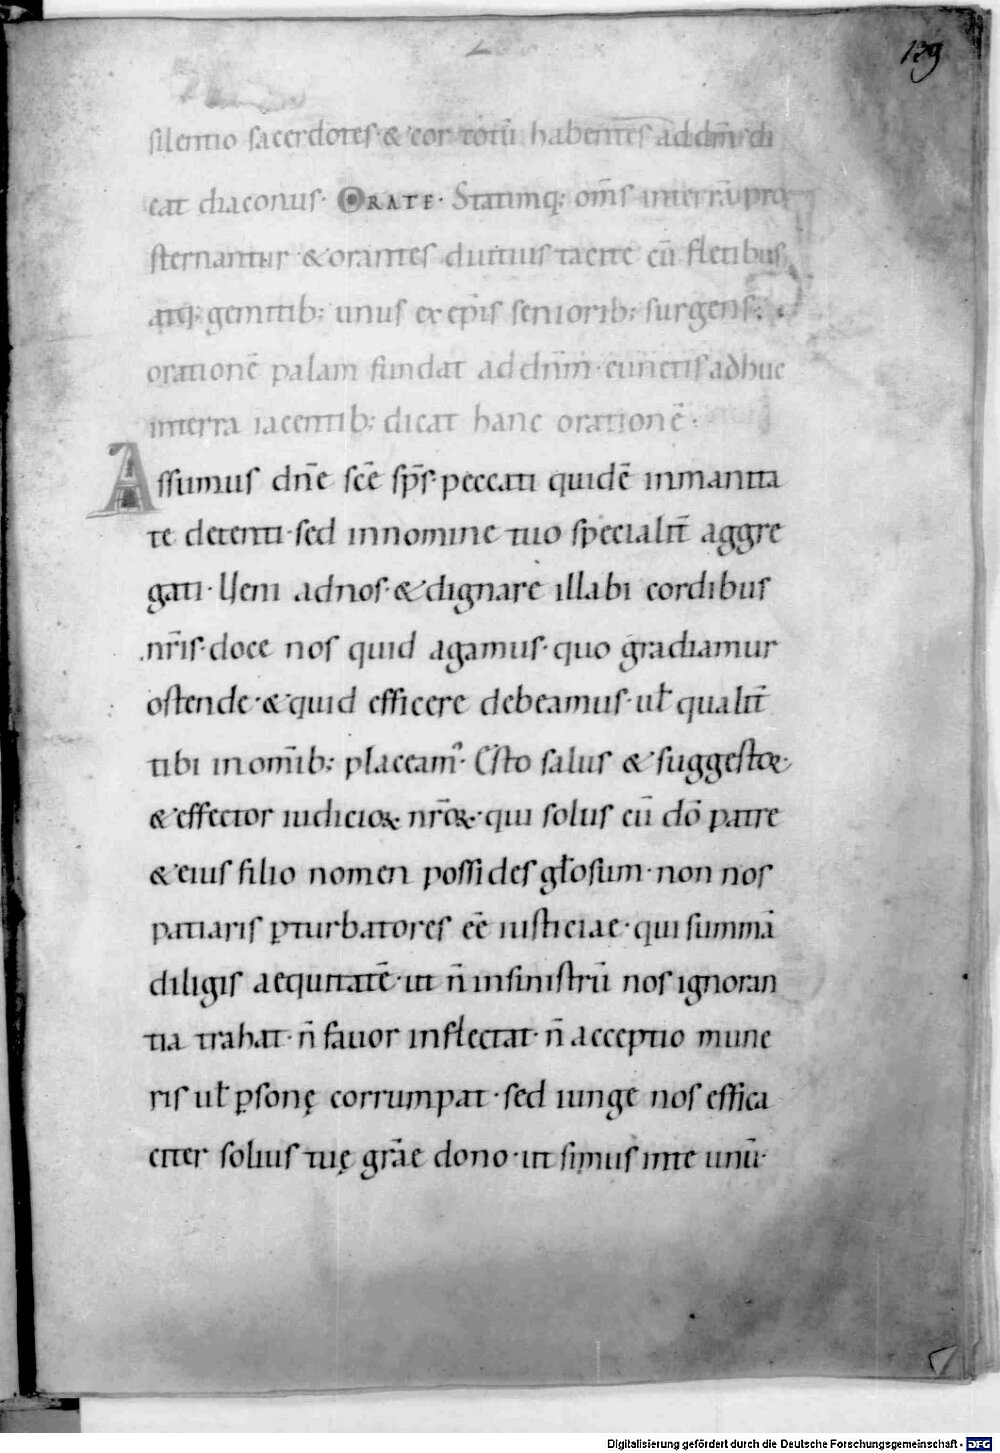 139
silentio sacerdotes·& cor totū habentes ad dn̄m·di
cat diaconus· ORATE· Statimq; om̄s interrā pro
sternantur & orantes diutius tacite cū fletibus
atq; gemitib; unus ex ep̄is seniorib; surgens·
orationē palam fundat ad dn̄m·cunctis adhuc
interra iacentib; dicat hanc orationē·
Assumus dn̄e sc̄e sp̄s·peccati quidē inmanita
te detenti·sed innomine tuo specialit̄ aggre
gati· Veni adnos·& dignare illabi cordibus
nr̄is·doce nos quid agamus·quo gradiamur
ostende·& quid efficere debeamus·ut qualit̄
tibi inom̄ib; placeam᾽· Esto salus & suggestoꝝ·
& effector iudicioꝝ nr̄oꝝ·qui solus cū dō patre
& eius filio nomen possides gƚosum·non nos
patiaris ꝑturbatores eē iusticiae·qui summā
diligis aequitatē·ut n̄ insinistrū nos ignoran
tia trahat·n̄ fauor inflectat·n̄ acceptio mune
ris uƚ ꝑsonę corrumpat·sed iunge nos effica
citer solius tuę gr̄ae dono·ut simus inte unū·
Digitalisierung gefördert durch die Deutsche Forschungsgemeinschaft - DFG